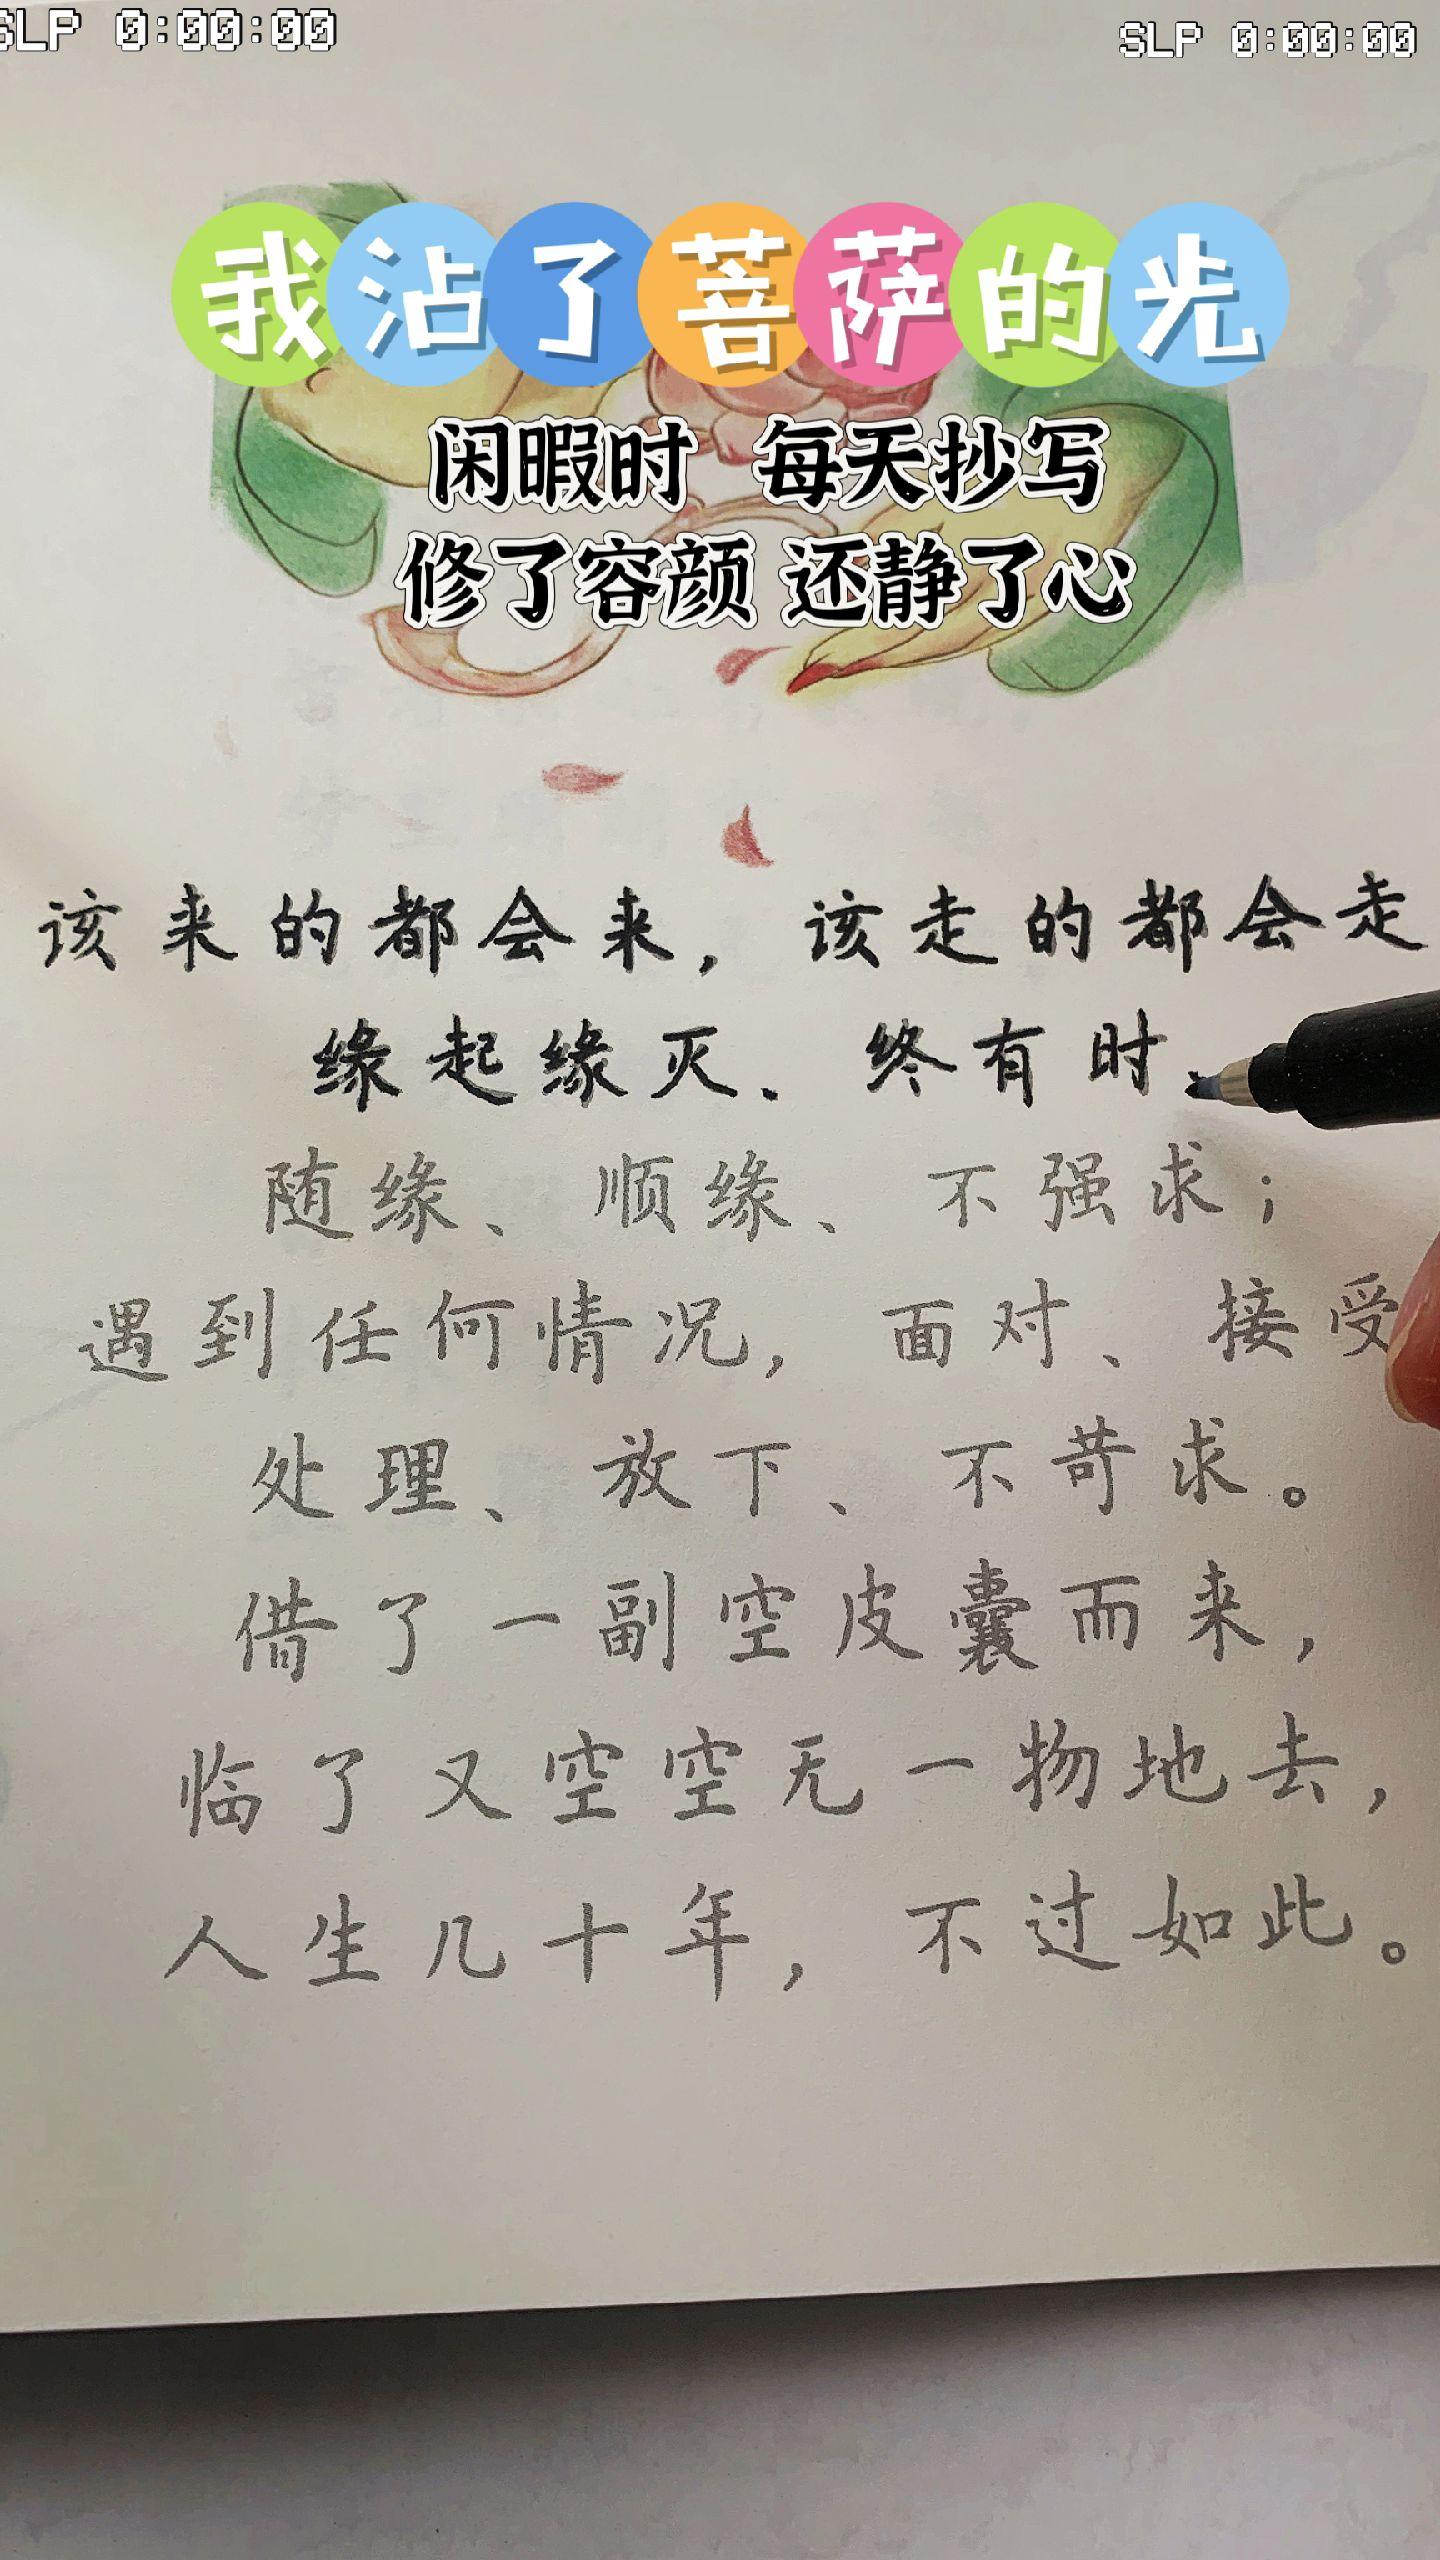 SLP 0:00:00
SLP 0:00:00
我沾了菩萨的光
闲暇时 每天抄写
修了容颜 还静了心
该来的都会来，该走的都会走
缘起缘灭、终有时
随缘、顺缘、不强求；
遇到任何情况，面对、接受
处理、放下、不苛求。
借了一副空皮囊而来，
临了又空空无一物地去，
人生几十年，不过如此。